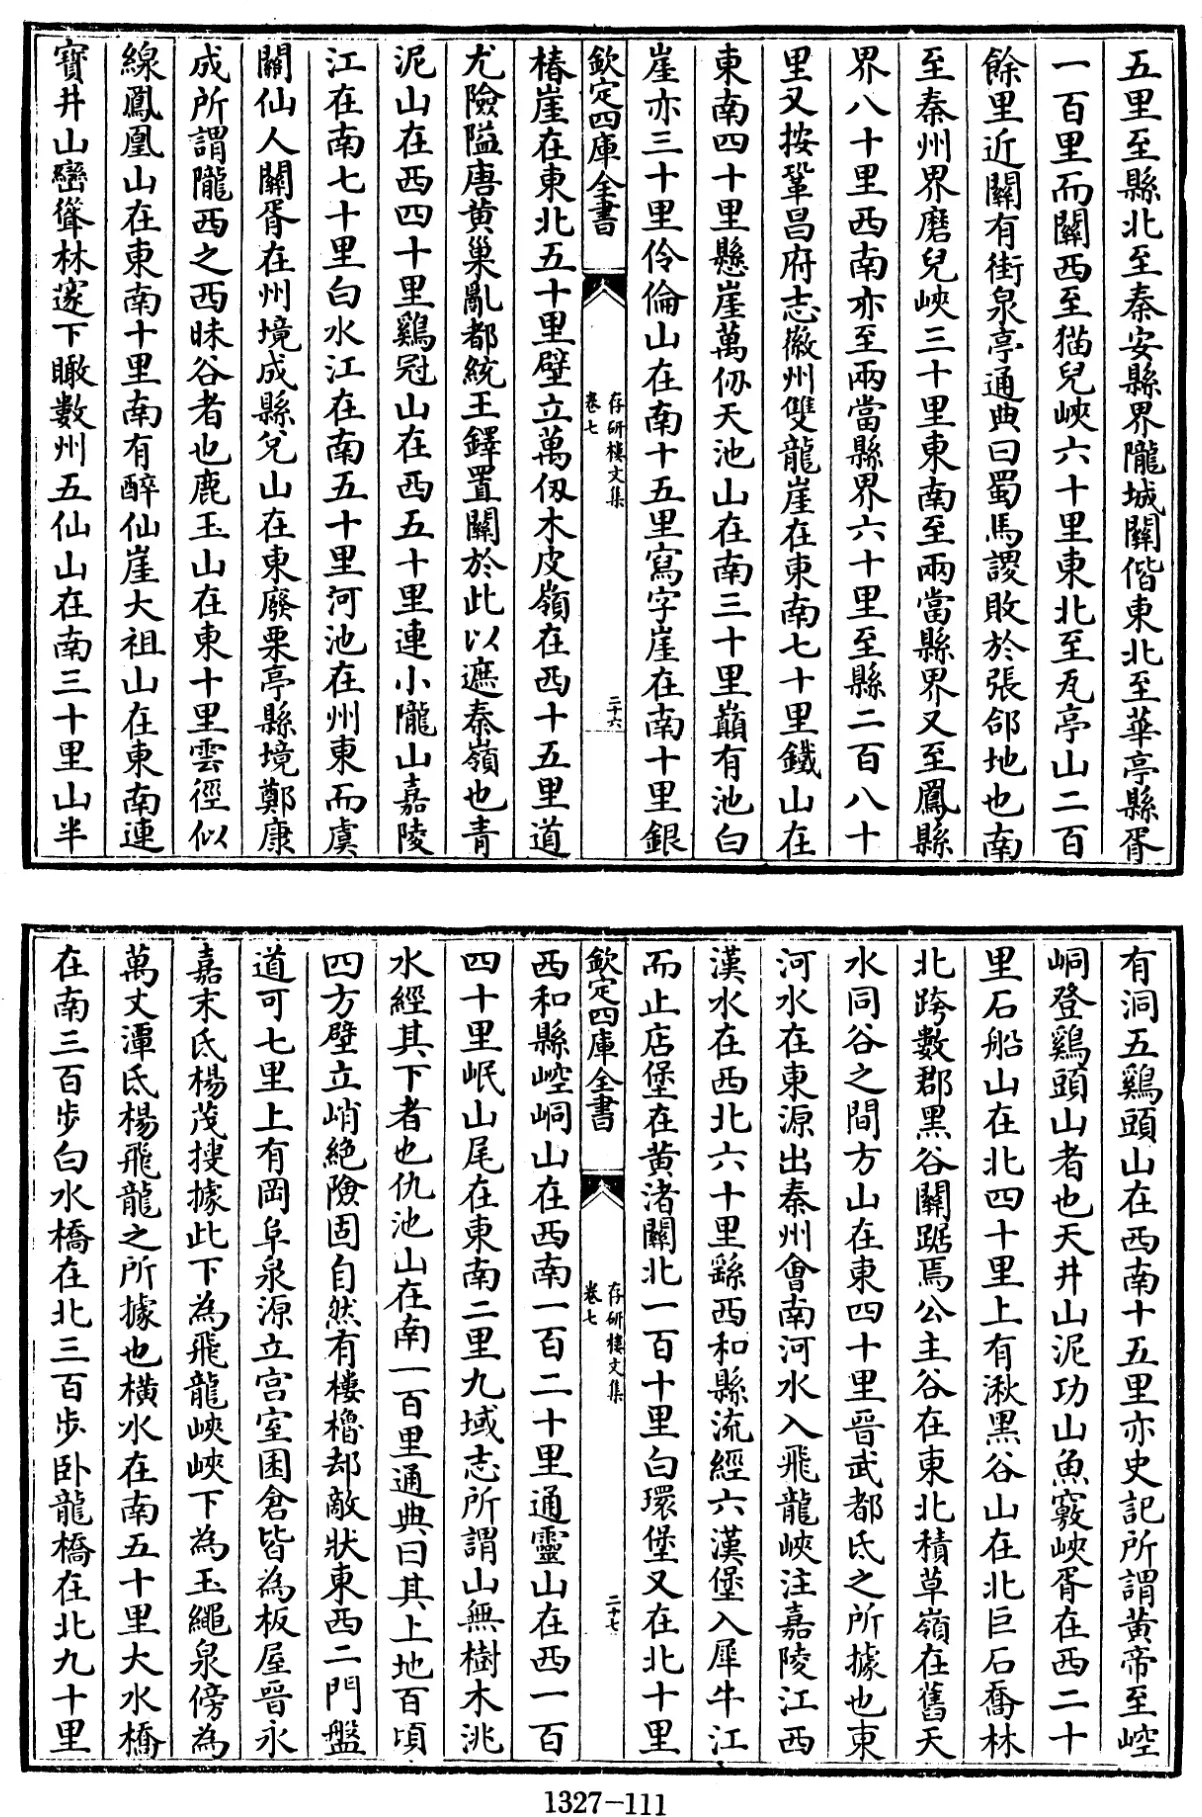 五里至縣北至秦安縣界隴城關偕東北至華亭縣胥
一百里而關西至猫兒峽六十里東北至瓦亭山二百
餘里近關有街泉亭通典曰蜀馬謖敗於張郃地也南
至秦州界磨兒峽三十里東南至兩當縣界又至鳳縣
界八十里西南亦至兩當縣界六十里至縣二百八十
里又按鞏昌府志徽州雙龍崖在東南七十里鐵山在
東南四十里懸崖萬仞天池山在南三十里巔有池白
崖亦三十里伶倫山在南十五里寫字崖在南十里銀
欽定四庫全書
存研樓文集
卷七
二十六
椿崖在東北五十里壁立萬仭木皮嶺在西十五里道
尤險隘唐黄巢亂都統王鐸置關於此以遮秦嶺也青
泥山在西四十里鷄冠山在西五十里連小隴山嘉陵
江在南七十里白水江在南五十里河池在州東而虞
關仙人關胥在州境成縣兌山在東廢栗亭縣境鄭康
成所謂隴西之西昧谷者也鹿玉山在東十里雲徑似
線鳳凰山在東南十里南有醉仙崖大祖山在東南連
寳井山巒聳林邃下瞰數州五仙山在南三十里山半
有洞五鷄頭山在西南十五里亦史記所謂黄帝至崆
峒登鷄頭山者也天井山泥功山魚竅峽胥在西二十
里石船山在北四十里上有湫黑谷山在北巨石喬林
北跨數郡黑谷關踞焉公主谷在東北積草嶺在舊天
水同谷之間方山在東四十里晉武都氐之所據也東
河水在東源出秦州會南河水入飛龍峽注嘉陵江西
漢水在西北六十里繇西和縣流經六漢堡入犀牛江
而止店堡在黄渚關北一百十里白環堡又在北十里
欽定四庫全書
存研樓文集
卷七
二十七
西和縣崆峒山在西南一百二十里通靈山在西一百
四十里岷山尾在東南二里九域志所謂山無樹木洮
水經其下者也仇池山在南一百里通典曰其上地百頃
四方壁立峭絶險固自然有樓櫓却敵狀東西二門盤
道可七里上有岡阜泉源立宫室囷倉皆為板屋晉永
嘉末氐楊茂搜據此下為飛龍峽峽下為玉繩泉傍為
萬丈潭氐楊飛龍之所據也横水在南五十里大水橋
在南三百步白水橋在北三百步卧龍橋在北九十里
1327-111